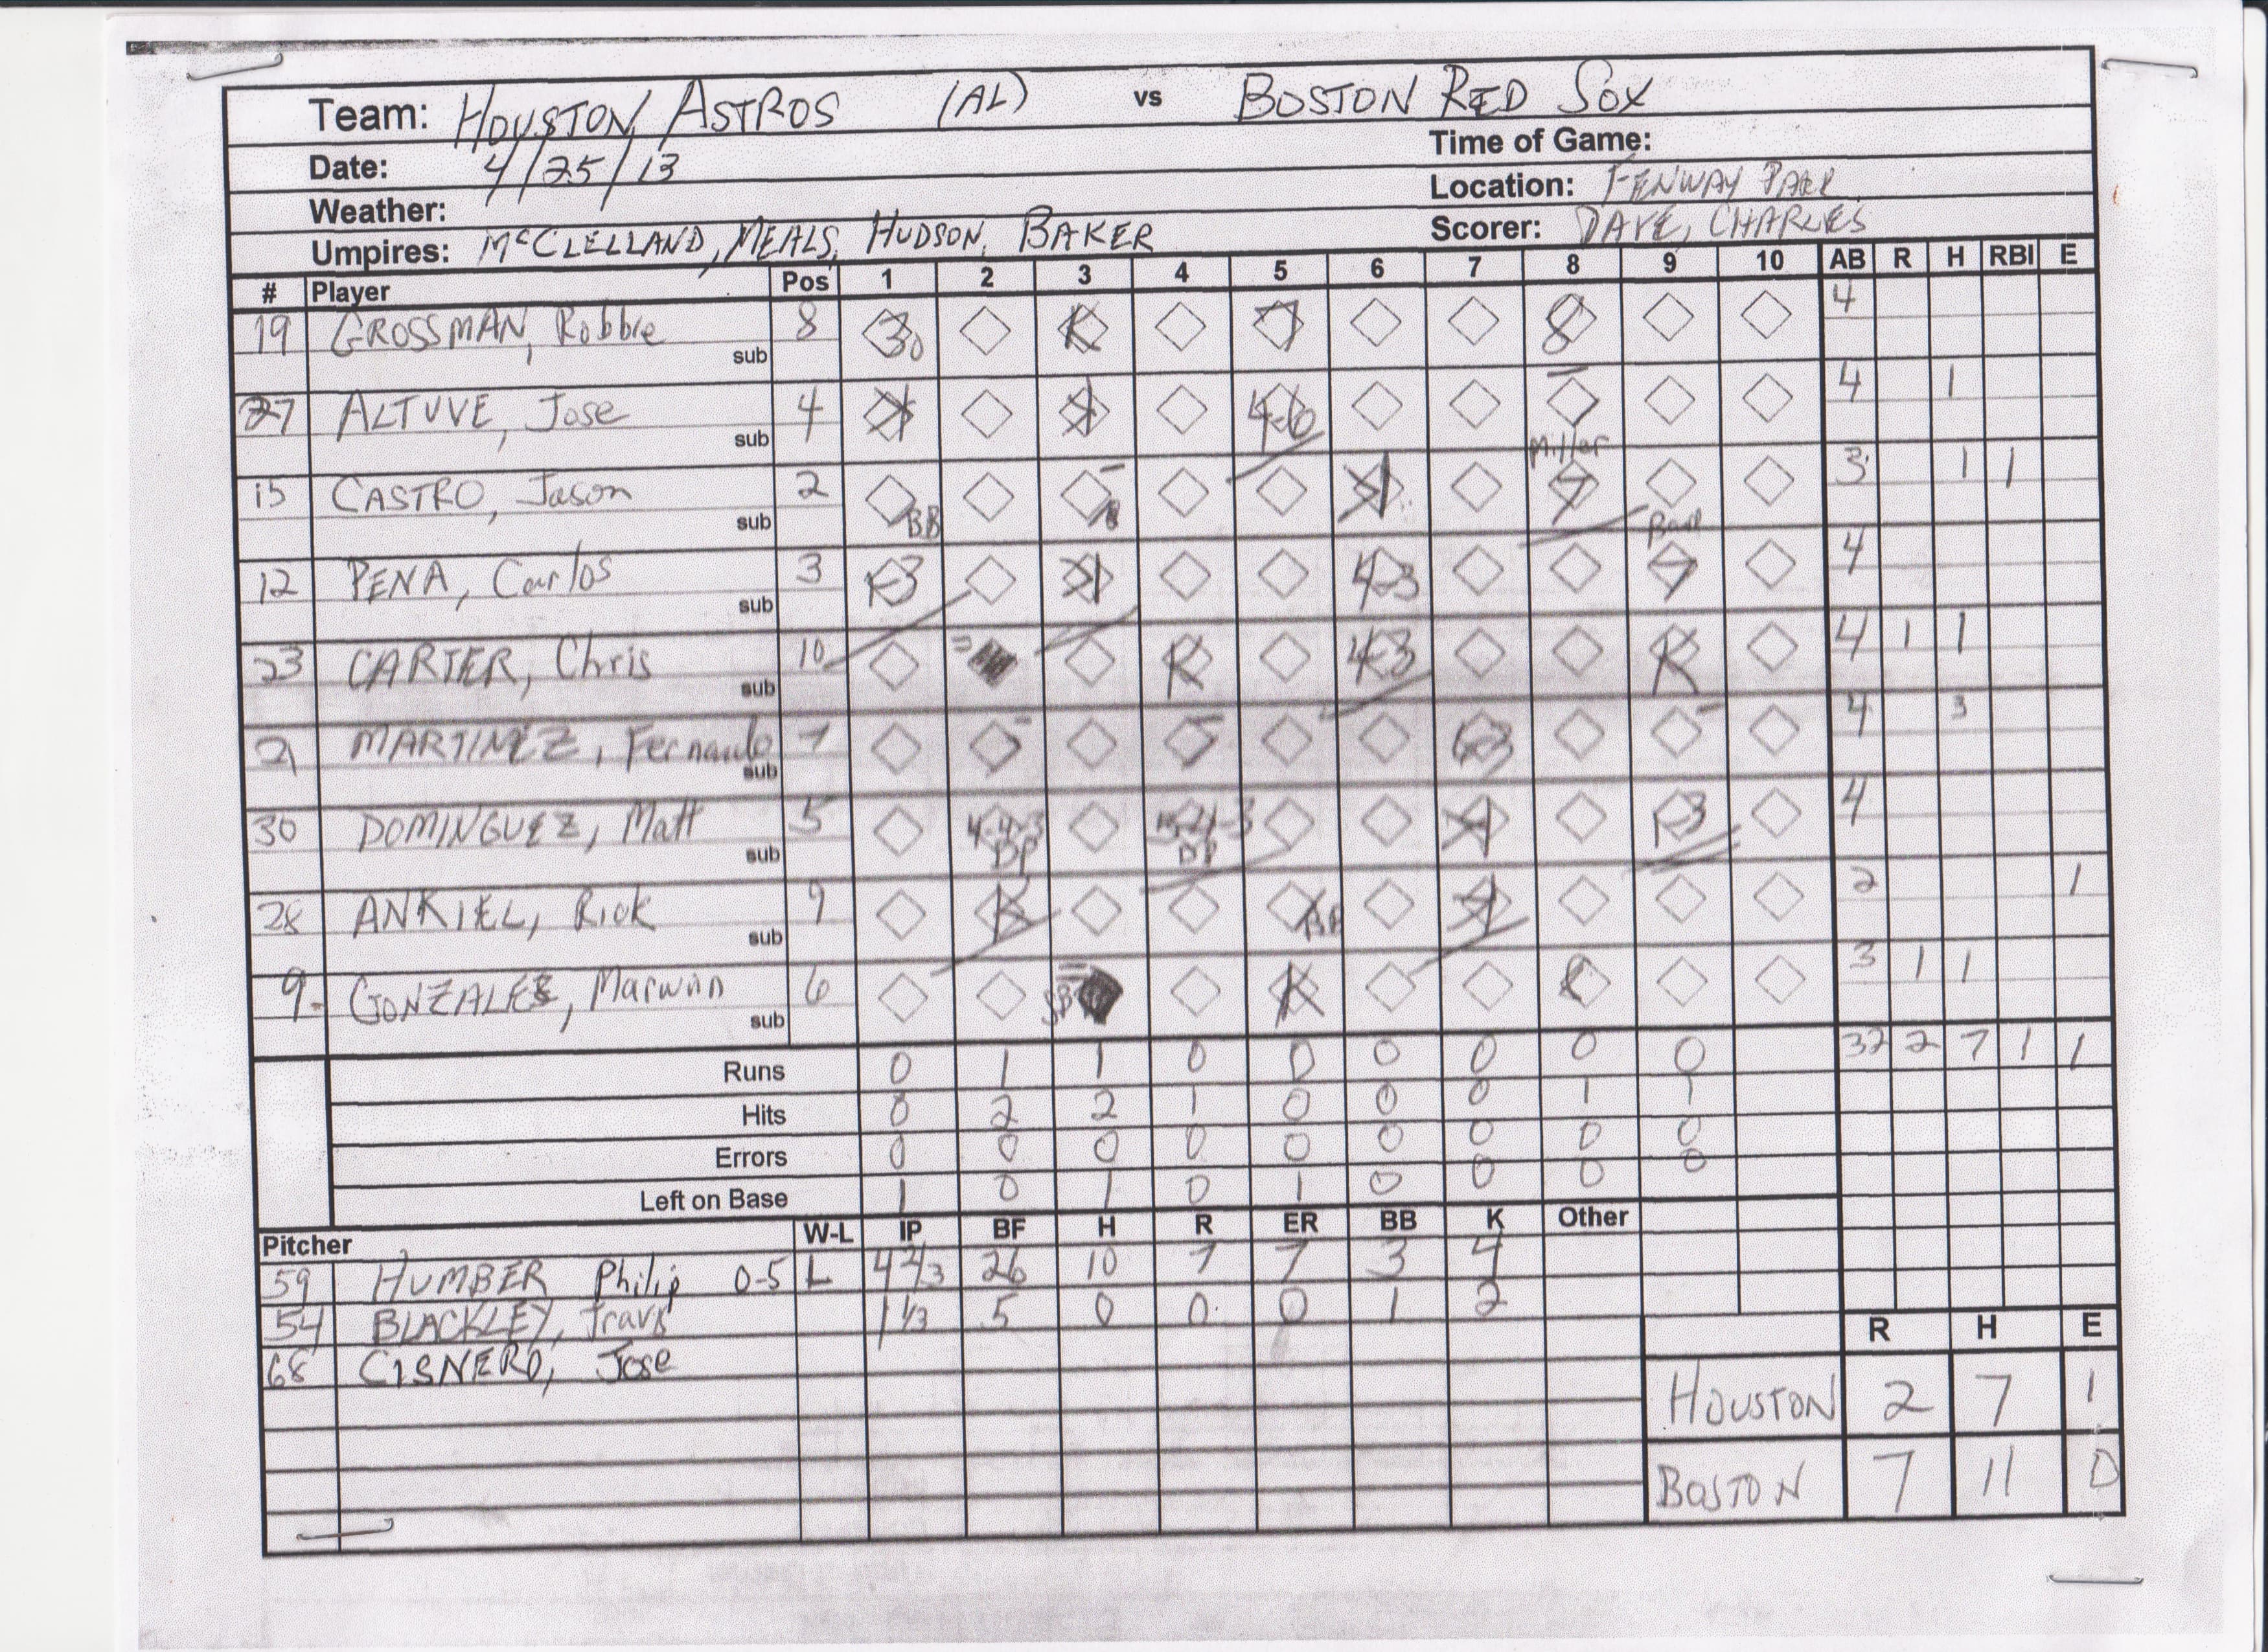 Team: HOUSTON ASTROS (AL) vs BOSTON RED SOX
Date: 4/25/13 Time of Game:
Weather: Location: FENWAY PARK
Umpires: McCLELLAND, MEALS, HUDSON, BAKER Scorer: DAVE, CHARLES
# Player Pos 1 2 3 4 5 6 7 8 9 10 AB R H RBI E
19 GROSSMAN, Robbie 8 30 K 7 8 4
sub
27 ALTUVE, Jose 4 4-6 4 1
sub
Miller
15 CASTRO, Jason 2 BB 7 3 1 1
sub
Bard
12 PENA, Carlos 3 1-3 4-3 7 4
sub
23 CARTER, Chris 10 K 4-3 K 4 1 1
sub
21 MARTINEZ, Fernando 7 6-3 4 3
sub
30 DOMINGUEZ, Matt 5 DP DP 1-3 4
sub
28 ANKIEL, Rick 9 K BB 2 1
sub
9 GONZALEZ, Marwin 6 SB K K 3 1 1
sub
Runs 0 1 1 0 0 0 0 0 0 32 2 7 1 1
Hits 0 2 2 1 0 0 0 1 1
Errors 0 0 0 0 0 0 0 0 0
Left on Base 1 0 1 0 1 0 0 0 0
Pitcher W-L IP BF H R ER BB K Other
59 HUMBER Philip 0-5 L 4 2/3 26 10 7 7 3 4
54 BLACKLEY, Travis 1 1/3 5 0 0 0 1 2
68 CISNERO, Jose
R H E
HOUSTON 2 7 1
BOSTON 7 11 0